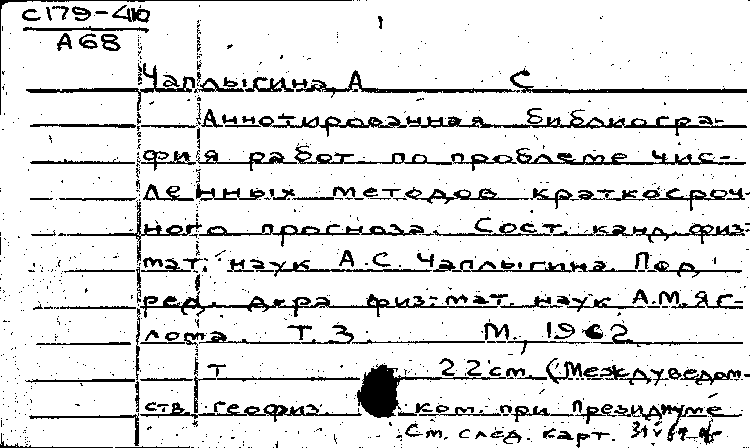 С179-410
А68
Чаплыгина, А С
Аннотированная библиогра-
фия работ по проблеме чис-
ленных методов краткосроч-
ного прогноза. Сост. канд. физ-
мат. наук А.С. Чаплыгина. Под
ред. д-ра физ-мат. наук А.М. Яг-
лома. Т. 3. М., 1962
т 22 см. (Междуведом-
ств. геофиз. ком. при Президиуме
См. след. карт.